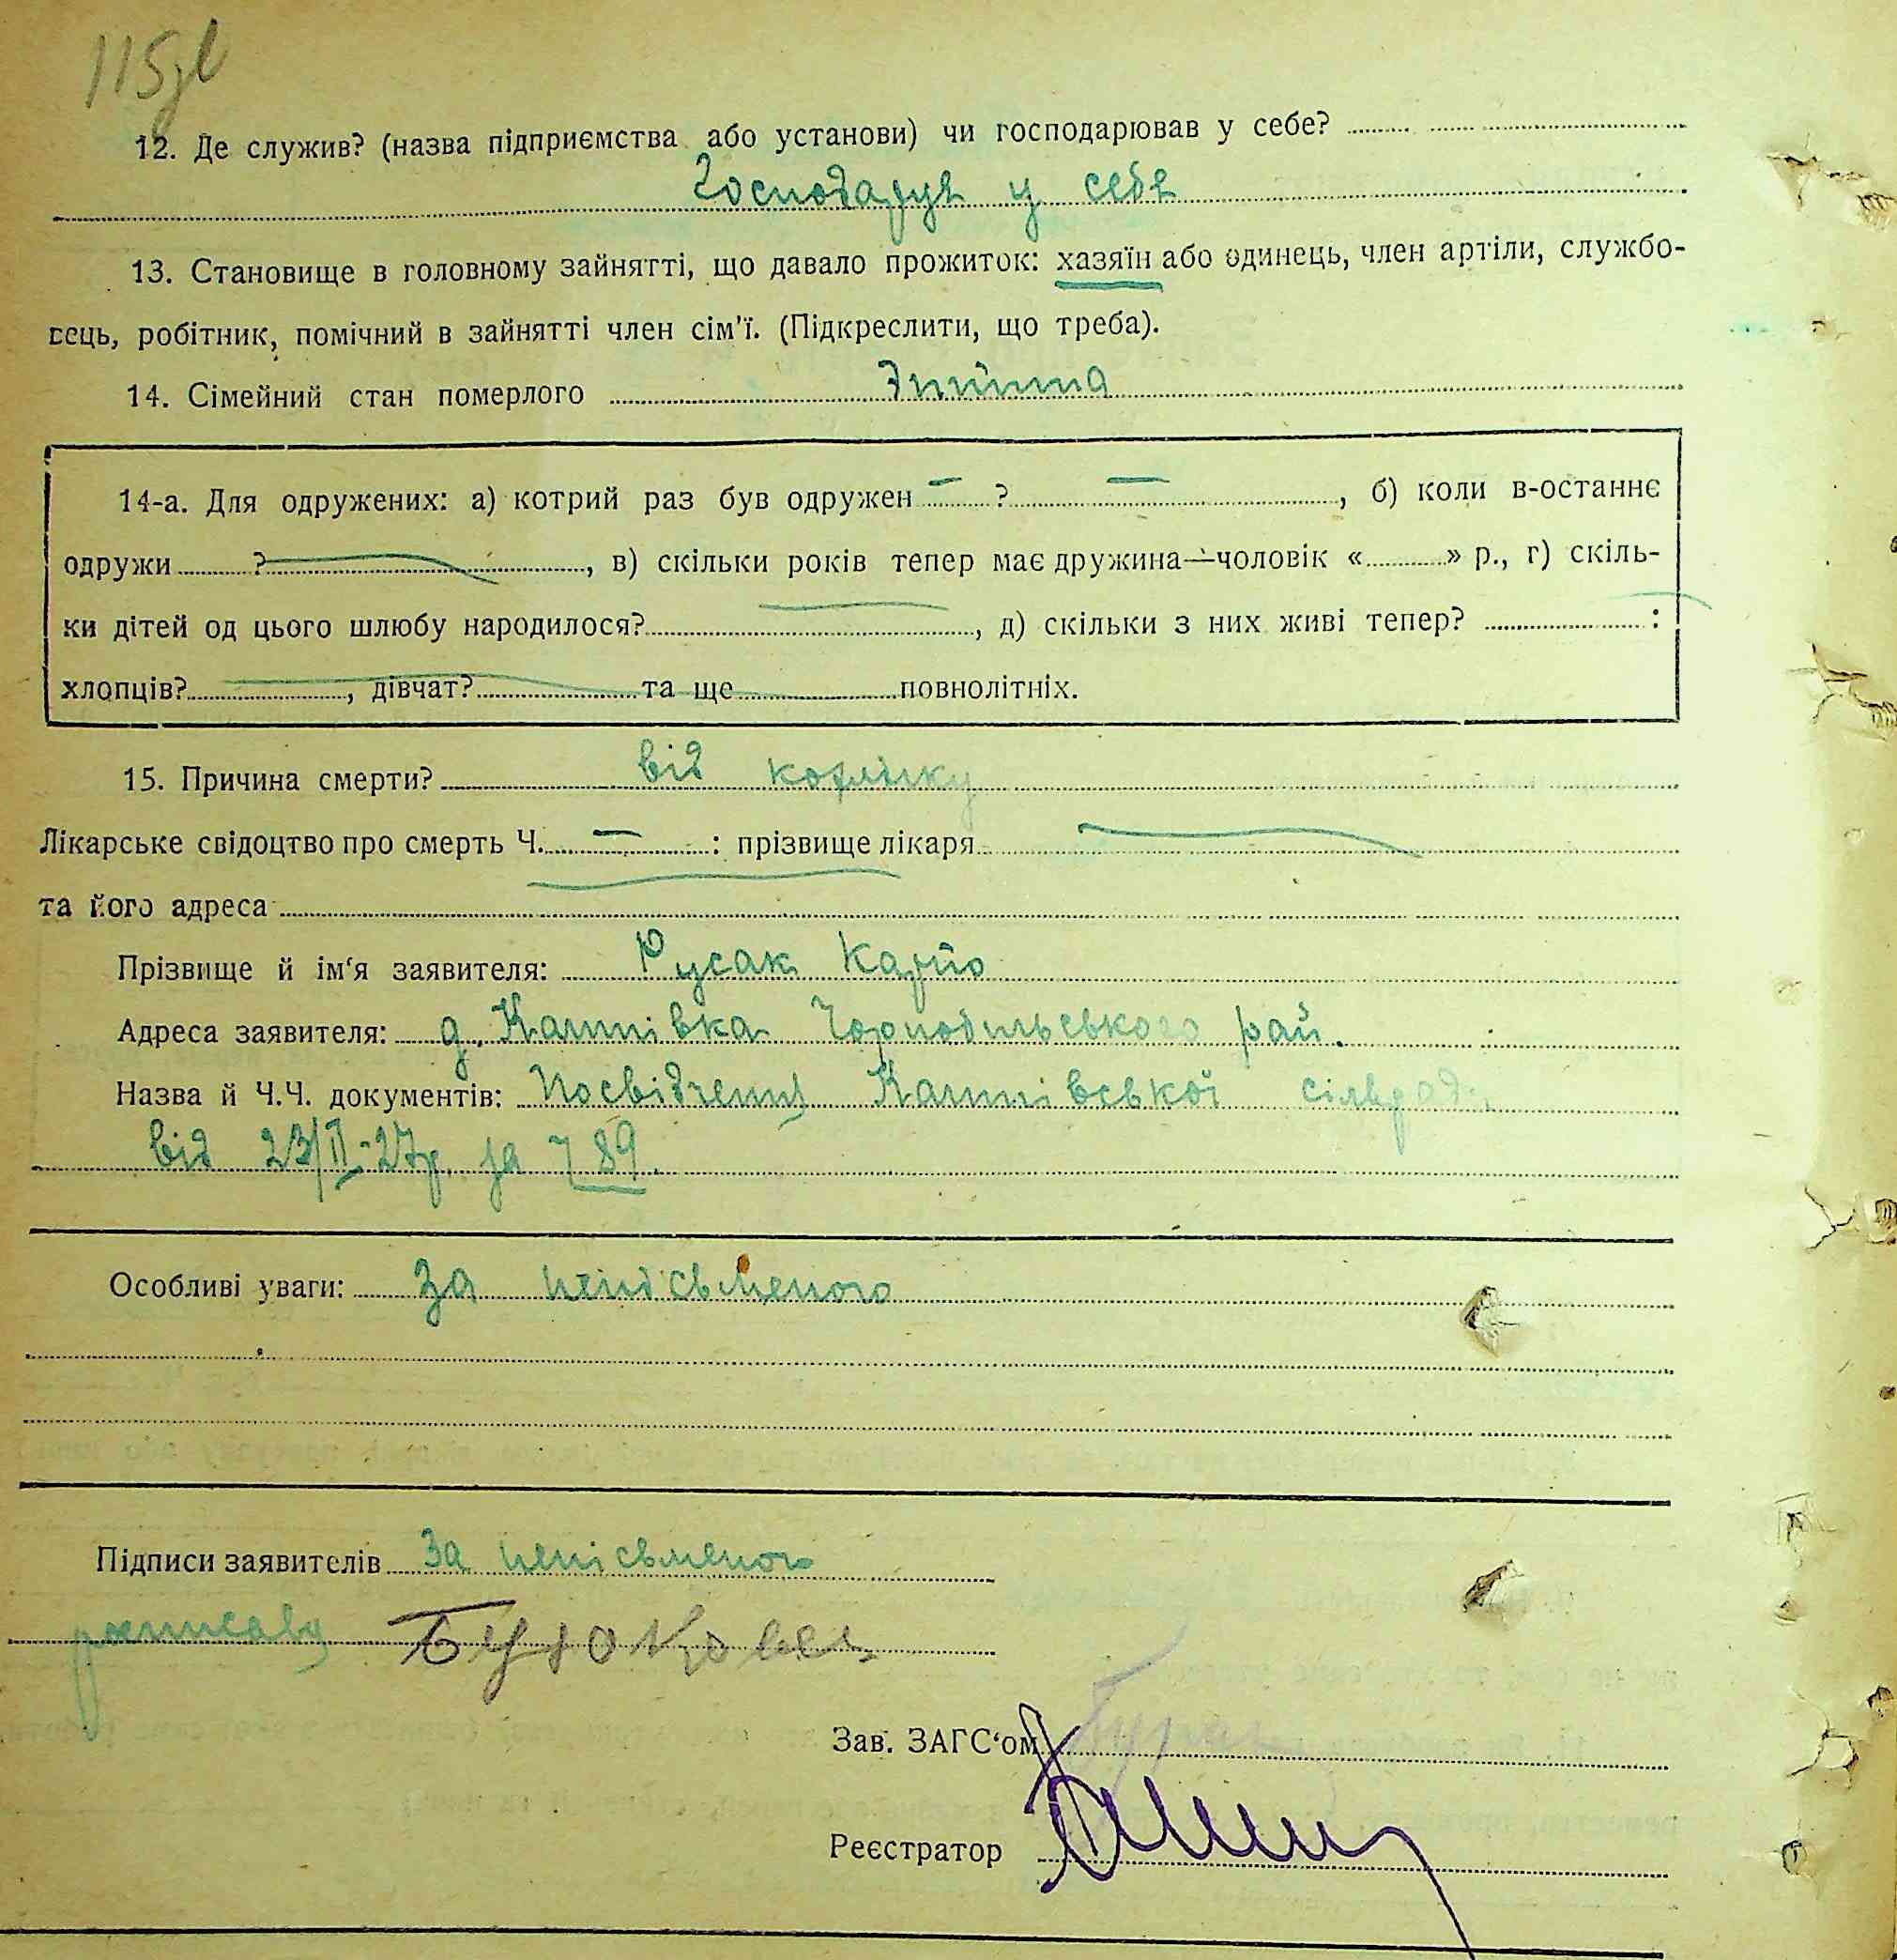 115
12. Де служив? (назва підприємства або установи) чи господарював у себе?
Господарув у себе
13. Становище в головному зайнятті, що давало прожиток: хазяїн або одинець, член артіли, службо-
вець, робітник, помічний в зайнятті член сім'ї. (Підкреслити, що треба).
14. Сімейний стан померлого
14-а. Для одружених: а) котрий раз був одружен — ? —, б) коли в-останнє
одружи ? —, в) скільки років тепер має дружина—чоловік « » р., г) скіль-
ки дітей од цього шлюбу народилося? —, д) скільки з них живі тепер? — :
хлопців? —, дівчат? — та ще — повнолітніх.
15. Причина смерти? від
Лікарське свідоцтво про смерть Ч. — : прізвище лікаря —
та його адреса —
Прізвище й ім'я заявителя: Русак Карпо
Адреса заявителя: д. Чорнобильського рай.
Назва й Ч.Ч. документів: Посвідчення сільради
від 23/II-27р. за 789.
Особливі уваги: За непісьменого
Підписи заявителів За непісьменого
росписавсь
Зав. ЗАГС'ом
Реєстратор